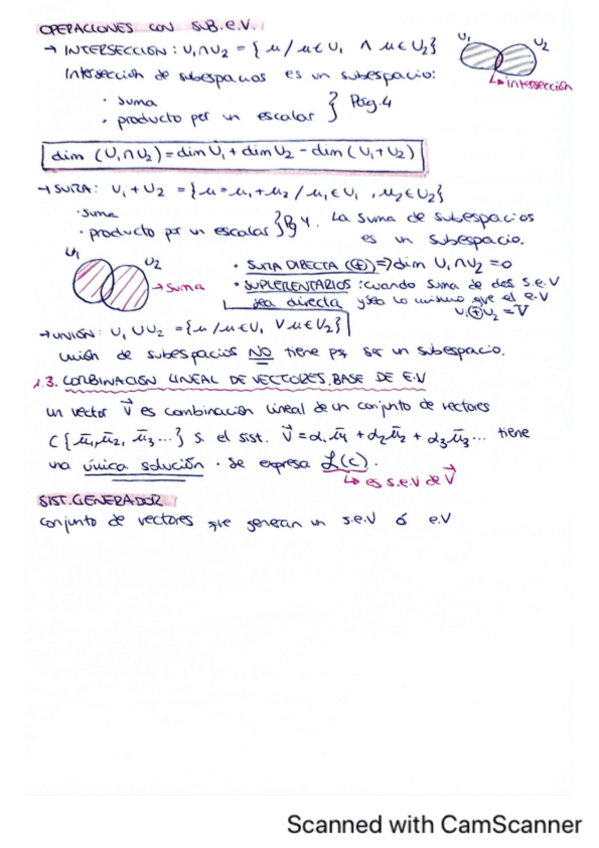 OPERACIONES CON SUB.e.V.
→ INTERSECCIÓN: U₁∩U₂ = { u / u ∈ U₁ ∧ u ∈ U₂}
U₁ U₂
↳ intersección
Intersección de subespacios es un subespacio:
· suma
· producto por un escalar } Pág.4
dim (U₁∩U₂) = dim U₁ + dim U₂ - dim (U₁+U₂)
→ SUMA: U₁ + U₂ = {u = u₁ + u₂ / u₁ ∈ U₁ , u₂ ∈ U₂}
· suma
· producto por un escalar } Pg 4. La suma de subespacios
es un subespacio.
U₁ U₂ → suma
· SUMA DIRECTA (⊕) => dim U₁∩U₂ = 0
· SUPLEMENTARIOS: cuando suma de dos s.e.V
sea directa y sea lo mismo que el e.V
U₁⊕U₂ = V
→ UNIÓN: U₁ ∪ U₂ = {u / u ∈ U₁ ∨ u ∈ U₂}
unión de subespacios NO tiene pq ser un subespacio.
1.3. COMBINACIÓN LINEAL DE VECTORES. BASE DE E.V
un vector V⃗ es combinación lineal de un conjunto de vectores
C{ū₁, ū₂, ū₃...} si el sist. V⃗ = α₁ū₁ + α₂ū₂ + α₃ū₃... tiene
una única solución. Se expresa ℒ(c).
↳ es s.e.V de V⃗
SIST. GENERADOR
conjunto de vectores que generan un s.e.V ó e.V
Scanned with CamScanner